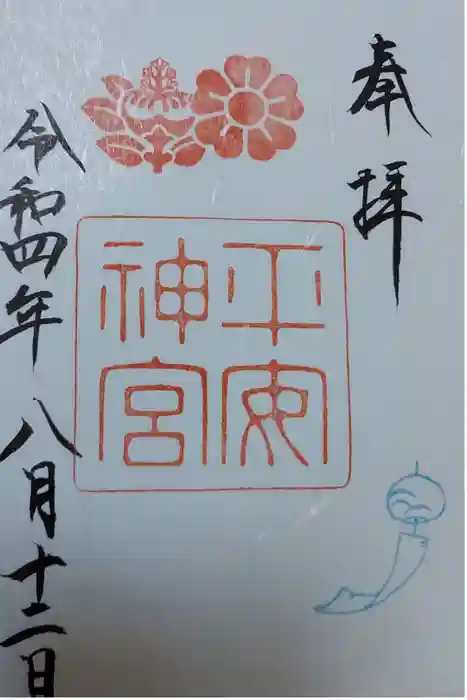 奉拝
平安
神宮
令和四年八月十二日